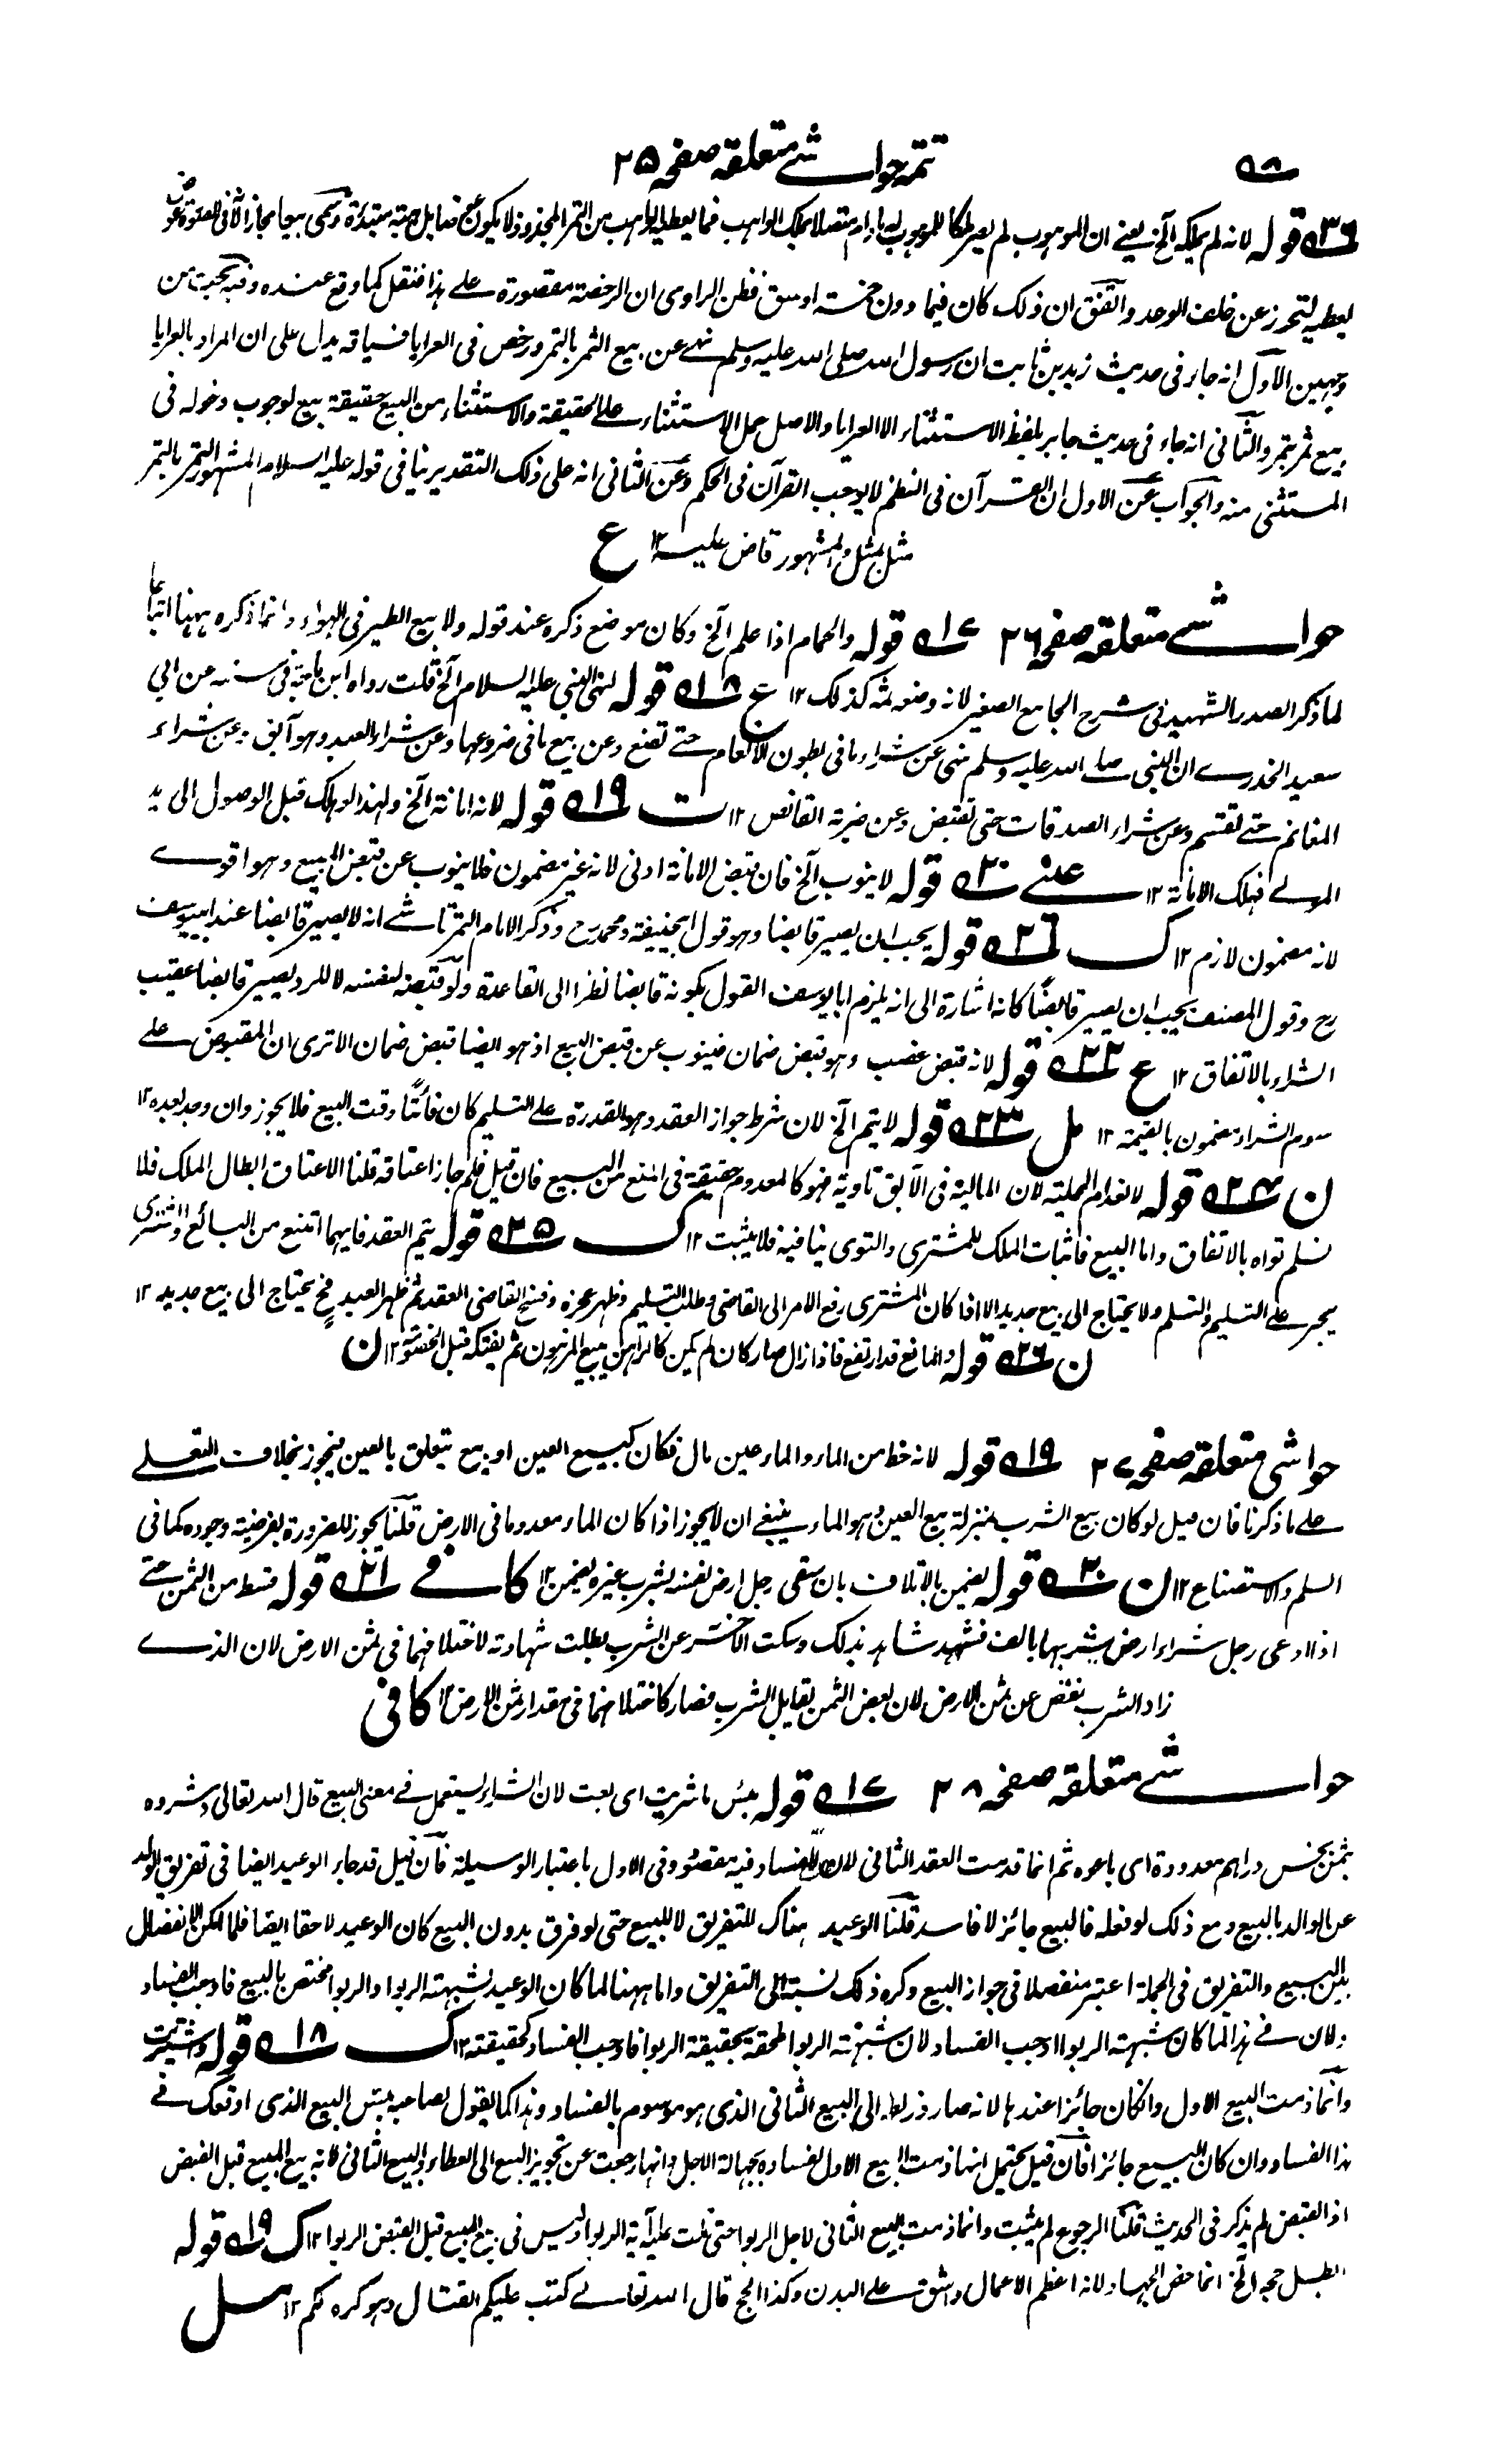 تتمہ حواشے متعلقہ صفحہ ۲۵
۳۶ قولہ لانہ لم یملکہ آلخ یعنے ان الموہوب لم یصر ملکا للموہوب لہ مادام متصلا بملک الواہب فما یعطیہ الواہب من التمر المجذوذ لا یکون عوضا بل ہبة مبتدأة وسمی بیعا مجازا لانه فی الصورة عوض
یعطیه لتحرز عن خلف الوعد واتفق ان ذلک کان فیما دون خمسة اوسق فظن الراوی ان الرخصة مقصورة علے ہذا فنقل کما وقع عنده وفیه بحث من
وجہین الاول انه جاء فی حدیث زید بن ثابت ان رسول اللہ صلی اللہ علیه وسلم نہے عن بیع الثمر بالتمر ورخص فی العرایا فسیاقه یدل علی ان المراد بالعرایا
بیع ثمر بتمر والثانی انه جاء فی حدیث جابر بلفظ الاستثناء الا العرایا والاصل حمل الاستثناء علے الحقیقة والاستثناء من البیع حقیقة بیع لوجوب دخوله فی
المستثنی منه والجواب عن الاول ان القرآن فی النظم لا یوجب القرآن فی الحکم وعن الثانی انه علی ذلک التقدیر ینافی قوله علیه السلام المشہور التمر بالتمر
مثل بمثل والمشہور قاض علیه ۱۲ ع
حواشے متعلقہ صفحہ ۲۶ ۱۷ قولہ والحمام اذا علم آلخ وکان موضع ذکره عند قوله ولا بیع الطیر فی الہواء وانما ذکره ہہنا اتباعا
لما ذکر الصدر الشہید فی شرح الجامع الصغیر لانه وضعه ثمه کذلک ۱۲ ع ۱۸ قولہ لنہی النبی علیه السلام آلخ قلت رواه ابن ماجة فی سننه عن ابی
سعید الخدرے ان النبی صلے اللہ علیه وسلم نہی عن شراء ما فی بطون الانعام حتے تضع وعن بیع ما فی ضروعہا وعن شراء العبد وہو آبق وعن شراء
المغانم حتے تقسم وعن شراء الصدقات حتی تقبض وعن ضربة القانص ۱۲ ت ۱۹ قولہ لانه امانة آلخ ولہذا لو ہلک قبل الوصول الی ید
المولے فہلک الامانة ۱۲ عینے ۲۰ قولہ لا ینوب آلخ فان قبض الامانة ادنی لانه غیر مضمون فلا ینوب عن قبض المبیع وہو اقوے
لانه مضمون لازم ۱۲ ک ۲۱ قولہ یجب ان یصیر قابضا وہو قول ابیحنیفة ومحمد رح وذکر الامام التمرتاشے انه لا یصیر قابضا عند ابییوسف
رح وقول المصنف یجب ان یصیر قابضًا کانه اشارة الی انه یلزم ابا یوسف القول بکونه قابضا نظرا الی القاعدة ولو قبضه لنفسه لا للرد یصیر قابضا عقیب
الشراء بالاتفاق ۱۲ ع ۲۲ قولہ لانه قبض غصب وہو قبض ضمان فینوب عن قبض البیع اذ ہو ایضا قبض ضمان الا تری ان المقبوض علے
سوم الشراء مضمون بالقیمة ۱۲ مل ۲۳ قولہ لا یتم آلخ لان شرط جواز العقد وہو القدرة علے التسلیم کان فائتًا وقت البیع فلا یجوز وان وجد بعده ۱۲
ن ۲۴ قولہ لانعدام المحلیة لان المالیة فی الآبق تاویة فہو کالمعدوم حقیقة فی المنع من البیع فان قیل فلم جاز اعتاقه قلنا الاعتاق ابطال الملک فلا
نسلم تواه بالاتفاق واما البیع فاثبات الملک للمشتری والتوی ینافیه فلا یثبت ۱۲ ک ۲۵ قولہ یتم العقد فایہما امتنع من البائع والمشتری
یجبر علے التسلیم والتسلم ولا یحتاج الی بیع جدید الا اذا کان المشتری رفع الامر الی القاضی وطلب التسلیم وظہر عجزه وفسخ القاضی العقد ثم ظہر العبد فح یحتاج الی بیع جدید ۱۲
ن ۲۶ قولہ والمانع قد ارتفع فاذا زال صار کان لم یکن کالراہن یبیع المرہون ثم یفتکه قبل الخصومة ۱۲ ن
حواشی متعلقہ صفحہ ۲۷ ۱۹ قولہ لانه حظ من الماء والماء عین مال فکان کبیع العین او بیع یتعلق بالعین فیجوز بخلاف التعلے
علے ما ذکرنا فان قیل لو کان بیع الشرب بمنزلة بیع العین وہو الماء ینبغے ان لا یجوز اذا کان الماء معدوما فی الارض قلنا یجوز للضرورة بفرضیة وجوده کما فی
السلم والاستصناع ۱۲ ن ۲۰ قولہ یضمن بالاتلاف بان سقی رجل ارض نفسه بشرب غیره یضمن ۱۲ کافے ۲۱ قولہ قسط من الثمن حتے
اذا ادعی رجل شراء ارض بشربہا بالف فشہد شاہد بذلک وسکت الآخر عن الشرب بطلت شہادته لاختلافہما فی ثمن الارض لان الذے
زاد الشرب نقص عن ثمن الارض لان بعض الثمن یقابل الشرب فصار کاختلافہما فی مقدار ثمن الارض ۱۲ کافی
حواشے متعلقہ صفحہ ۲۸ ۱۷ قولہ بئس ما شریت ای بعت لان الشراء یستعمل فے معنی البیع قال اللہ تعالی وشروه
بثمن بخس دراہم معدودة ای باعوه ثم انما قدمت العقد الثانی لان الفساد فیه مقصود وفی الاول باعتبار الوسیلة فان قیل قد جاء الوعید ایضا فی تفریق الولد
عن الوالد بالبیع ومع ذلک لو فعله فالبیع جائز لا فاسد قلنا الوعید ہناک للتفریق لا للبیع حتی لو فرق بدون البیع کان الوعید لاحقا ایضا فلما امکن الانفصال
بین البیع والتفریق فی الجملة اعتبر منفصلا فی جواز البیع وکره ذلک نسبة الی التفریق واما ہہنا لما کان الوعید لشبہة الربوا والربوا مختص بالبیع فاوجب الفساد
ولان فے ہذا لما کان شبہة الربوا اوجب الفساد لان شبہة الربوا ملحقة بحقیقة الربوا فاوجب الفساد کحقیقته ۱۲ ک ۱۸ قولہ واشتریت
وانما ذمت البیع الاول وان کان جائزا عندہا لانه صار ذریعة الی البیع الثانی الذی ہو موسوم بالفساد وہذا کما یقول لصاحبه بئس البیع الذی اوقعک فے
ہذا الفساد وان کان البیع جائزا فان قیل یحتمل انہا ذمت البیع الاول لفساده بجہالة الاجل وانہا رجعت عن تجویز البیع الی العطاء والبیع الثانی لانه بیع المبیع قبل القبض
اذ القبض لم یذکر فی الحدیث قلنا الرجوع لم یثبت وانما ذمت البیع الثانی لاجل الربوا حتی تلت علیه آیة الربوا ولیس فی بیع المبیع قبل القبض الربوا ۱۲ ک ۱۹ قولہ
ابطل حجه آلخ انما خص الجہاد لانه اعظم الاعمال واشق علے البدن وکذا الحج قال اللہ تعالے کتب علیکم القتال وہو کره لکم ۱۲ سل